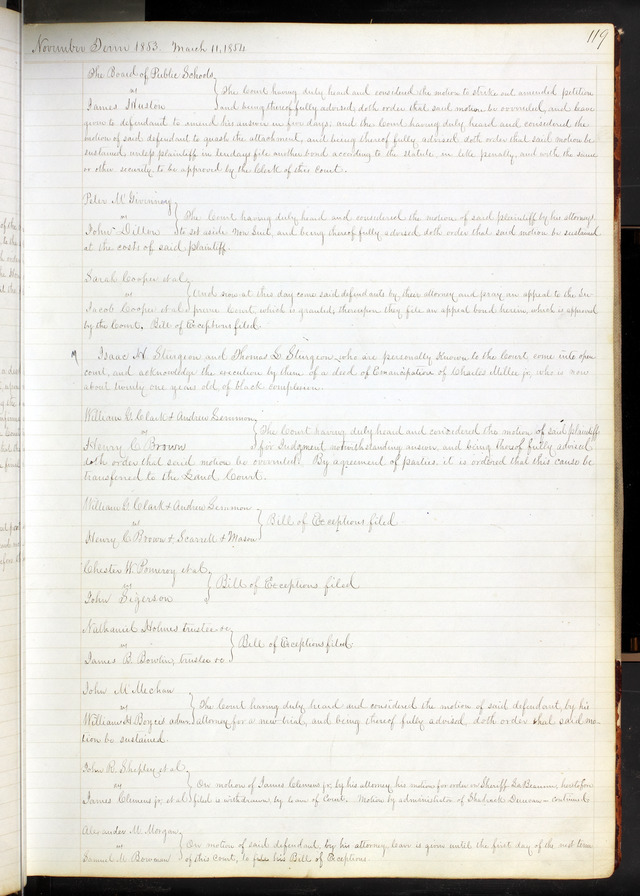 119
November Term 1853. March 11, 1854
The Board of Public Schools
vs The Court having duly heard and considered the motion to strike out amended petition
James Huston and being thereof fully advised, doth order that said motion be overruled, and leave
given to defendant to amend his answer in five days; and the Court having duly heard and considered the
motion of said defendant to quash the attachment, and being thereof fully advised doth order that said motion be
sustained, unless plaintiff in ten days file another bond according to the statute, in like penalty, and with the same
or other security, to be approved by the Clerk of this Court.
Peter
vs The Court having duly heard and considered the motion of said plaintiff by his attorney
John Dillon to set aside Non Suit, and being thereof fully advised doth order that said motion be sustained
at the costs of said plaintiff.
Sarah Cooper et al
vs And now at this day come said defendants by their attorney and pray an appeal to the Su-
Jacob Cooper et al preme Court, which is granted, thereupon they file an appeal bond herein, which is approved
by the Court. Bill of Exceptions filed.
Isaac H. Sturgeon and Thomas L. Sturgeon, who are personally known to the Court, come into open
court, and acknowledge the execution by them of a deed of Emancipation of Charles Miller jr, who is now
about twenty one years old of black complexion.
William G. Clark & Andrew Gemmon
vs The Court having duly heard and considered the motion of said plaintiffs
Henry C Brown for Judgment notwithstanding answer, and being thereof fully advised
doth order that said motion be overruled. By agreement of parties, it is ordered that this cause be
transferred to the Land Court.
William G. Clark & Andrew Gemmon
vs Bill of Exceptions filed
Henry C Brown & Scarrett & Mason
Chester W. Pomeroy et al.
vs Bill of Exceptions filed
John Sigerson
Nathaniel Holmes trustee &c
vs Bill of Exceptions filed.
James B. Bowlin, trustee &c
John McMechan
vs The Court having duly heard and considered the motion of said defendant, by his
William H Boyce's admr attorney for a new trial, and being thereof fully advised, doth order that said mo-
tion be sustained.
John R. Shepley et al
vs On motion of James Clemens jr, by his attorney, his motion for order on Sheriff heretofore
James Clemens jr, et al filed is withdrawn, by leave of Court. Motion by administrator of Shadrack Duncan – continued
Alexander M. Morgan,
vs On motion of said defendant, by his attorney, leave is given until the first day of the next term
Samuel M. Bowman of this Court, to file his Bill of Exceptions.